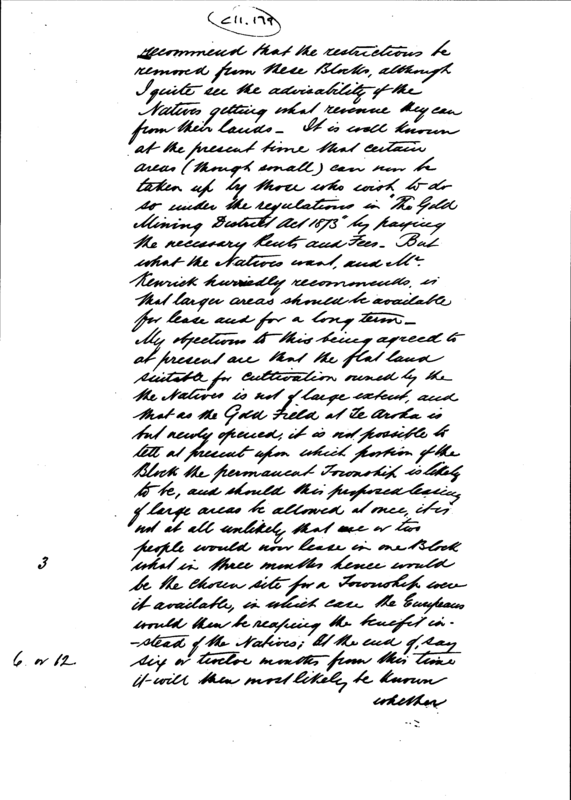 C11.179
recommend that the restrictions be
removed from these Blocks, although
I quite see the advisability of the
Natives getting what revenue they can
from their lands – It is well known
at the present time that certain
areas (though small) can now be
taken up by those who wish to do
so under the regulations in "The Gold
Mining District Act 1873" by paying
the necessary Rents and Fees – But
what the Natives want, and Mr.
Kenrick hurriedly recommends, is
that larger areas should be available
for lease and for a long term –
My objections to this being agreed to
at present are that the flat land
suitable for cultivation owned by the
the Natives is not of large extent, and
that as the Gold Field at Te Aroha is
but newly opened, it is not possible to
tell at present upon which portion of the
Block the permanent Township is likely
to be, and should this proposed leasing
of large areas be allowed at once, it is
not at all unlikely that one or two
people would now lease in one Block
3 what in three months hence would
be the chosen site for a Township were
it available, in which case the Europeans
would then be reaping the benefit in-
-stead of the Natives; At the end of, say
6 or 12 six or twelve months from this time
it will then most likely be known
whether